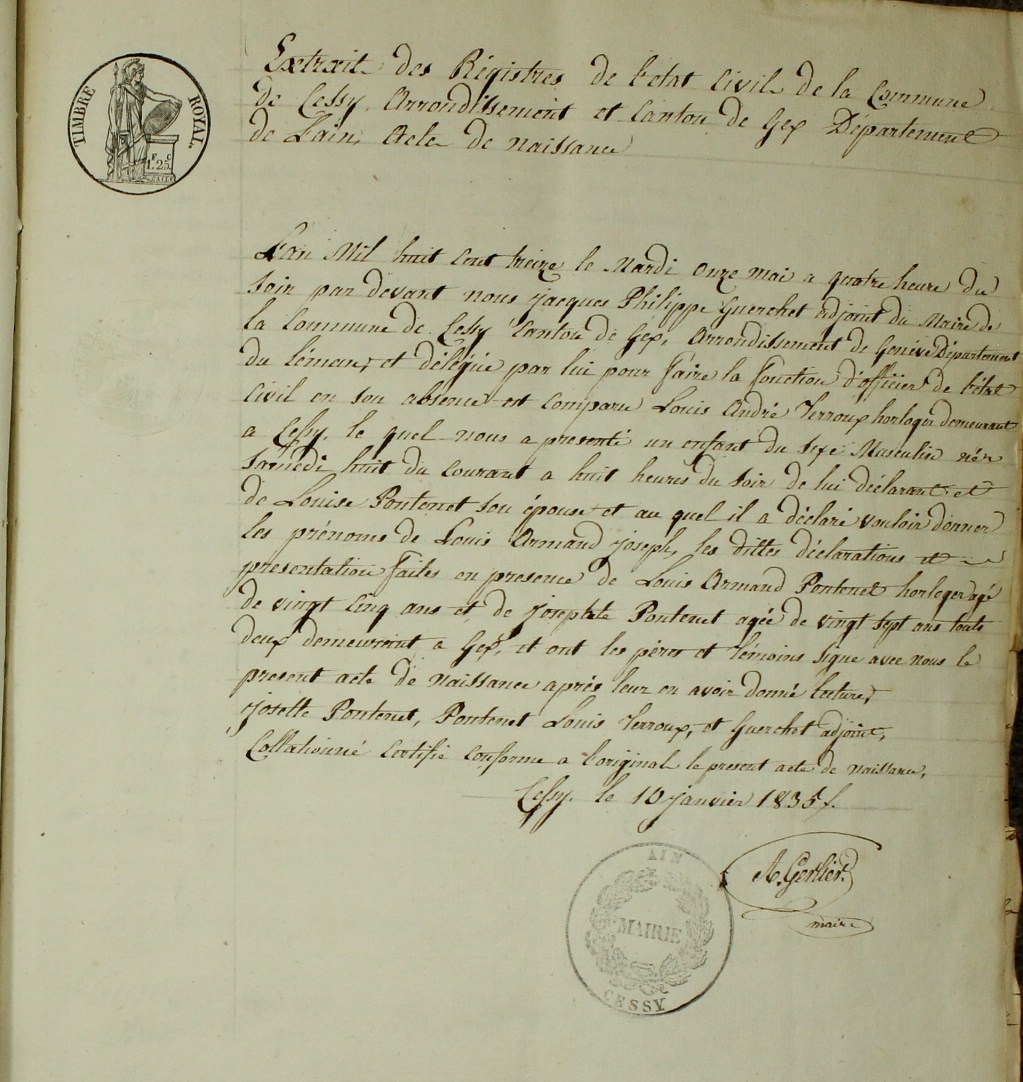 TIMBRE ROYAL.
F. C.
1. 25.
Extrait des Régistres de l'etat Civil de la Commune
de Cessy, Arrondissement et Canton de Gex Département
de l'ain, Acte de naissance
L'an Mil huit cent treize le Mardi onze mai a quatre heure du
soir par devant nous jacques Philippe Guerchet adjoint du Maire de
la Commune de Cessy Canton de Gex, Arrondissement de Genève Département
du léman, et délégué par lui pour faire la fonction d'officier de l'état
Civil en son absence est comparu Louis André Terroux horloger demeurant
a Cessy, le quel nous a presenté un enfant du sexe Masculin née
samedi huit du courant a huit heures du soir de lui déclarant et
de Louise Pontenet son épouse et au quel il a déclaré vouloir donner
les prénoms de Louis Armand joseph, les dittes déclarations et
presentation faites en presence de Louis Armand Pontenet horloger agé
de vingt cinq ans et de josephte Pontenet agée de vingt sept ans touts
deux demeurant a Gex, et ont les pères et témoins signé avec nous le
present acte de naissance après leur en avoir donné lecture,
josette Pontenet, Pontenet Louis Terroux, et Guerchet adjoint,
Collationné certifié conforme a l'original le present acte de naissance,
Cessy, le 10 janvier 1835.
A. Gerlier.
maire
AIN
MAIRIE
CESSY